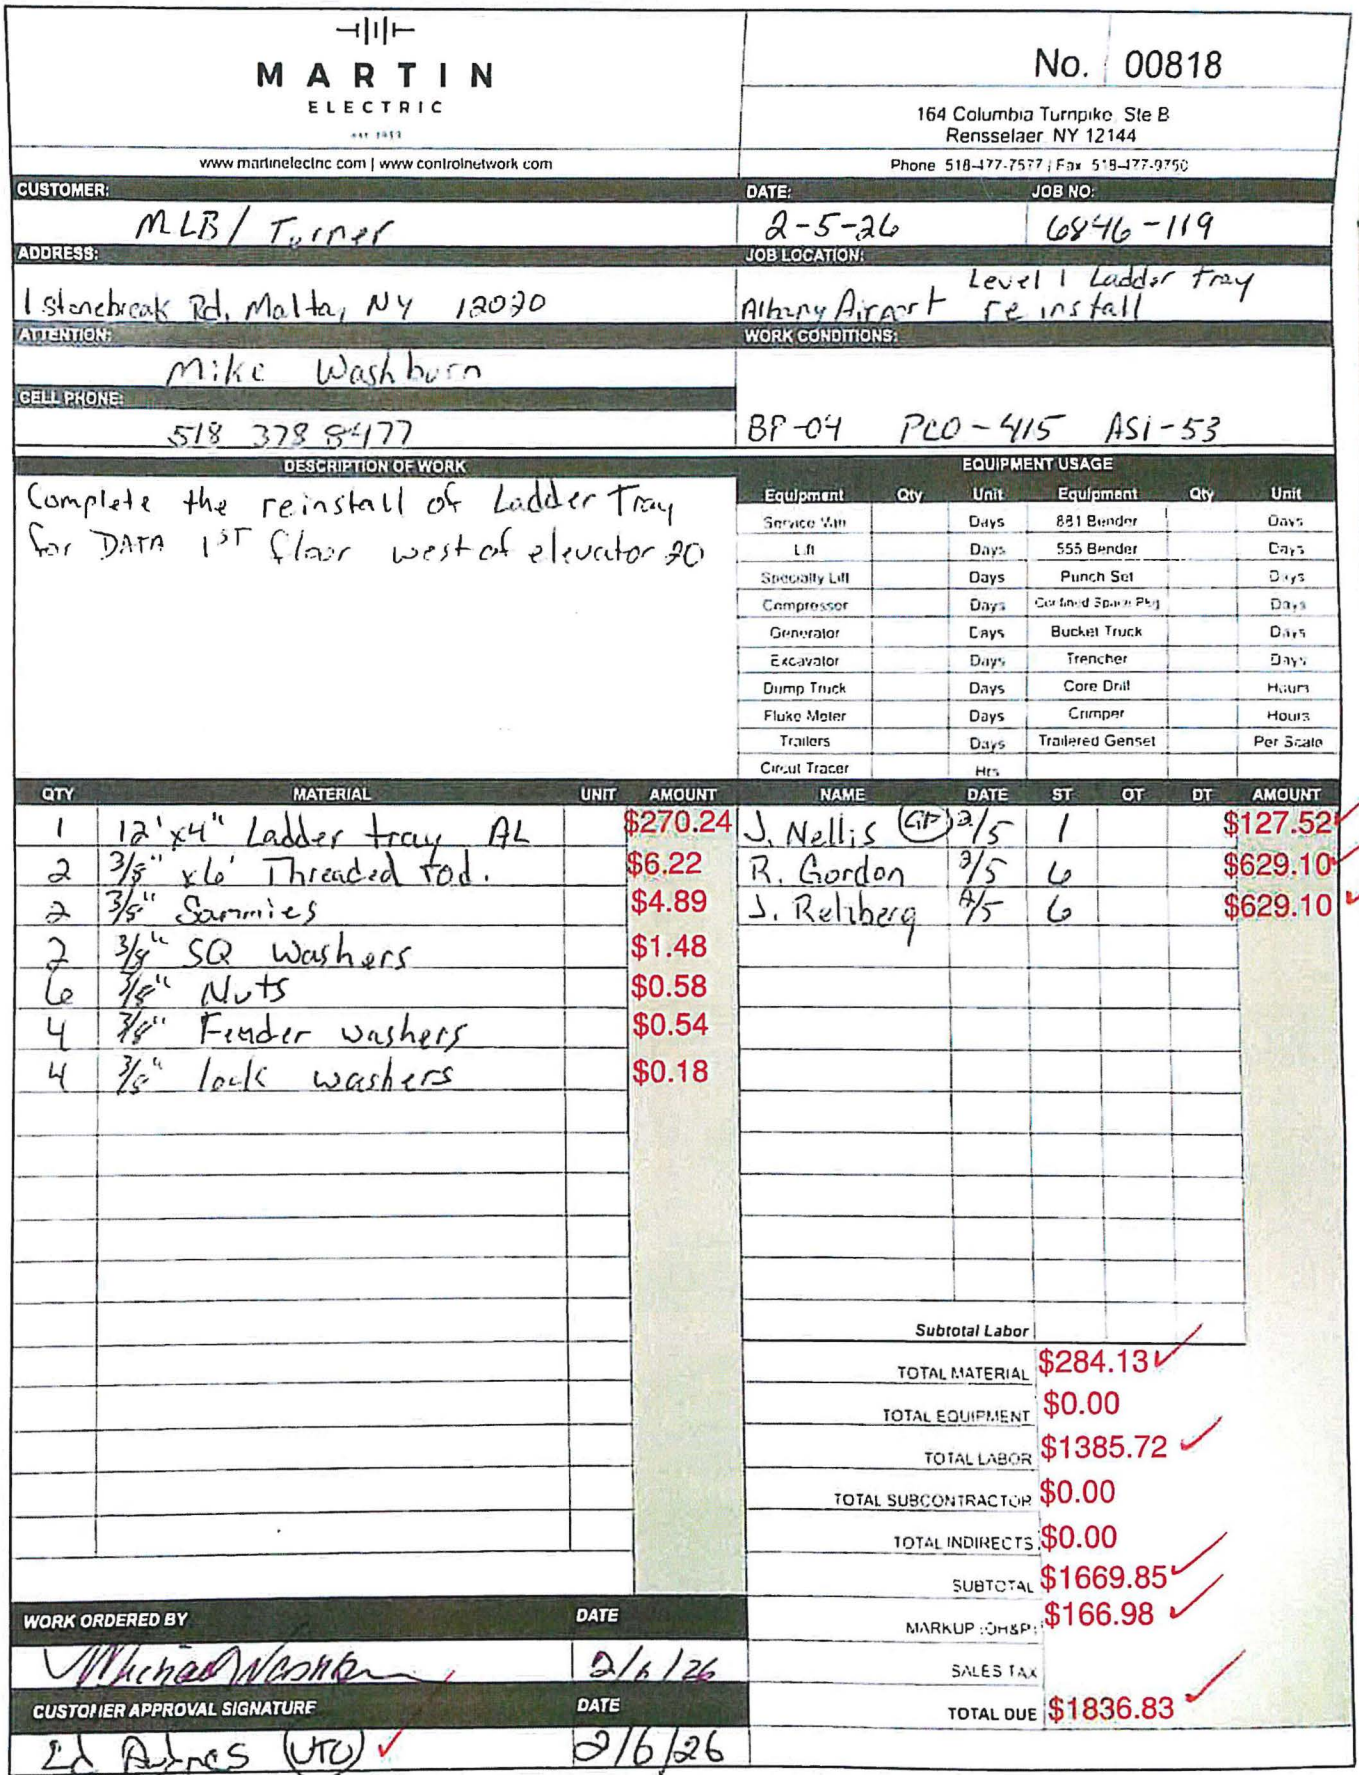 MARTIN
ELECTRIC
www.martinelectric com | www.controlnetwork com
No. 00818
164 Columbia Turnpike, Ste B
Rensselaer, NY 12144
Phone 518-477-7577 / Fax 518-477-9750
CUSTOMER:
MLB/ Turner
DATE: JOB NO:
2-5-26 6846-119
ADDRESS:
1 stonebreak Rd, Malta, NY 12020
JOB LOCATION:
Level 1 Ladder tray
Albany Airport re install
ATTENTION:
Mike Washburn
WORK CONDITIONS:
CELL PHONE:
518 378 8477
BP-04 PCO-415 ASI-53
DESCRIPTION OF WORK
Complete the reinstall of Ladder Tray
for DATA 1ST floor west of elevator 20
EQUIPMENT USAGE
Equipment Qty Unit Equipment Qty Unit
Service Van Days 881 Bender Days
Lift Days 555 Bender Days
Specialty Lift Days Punch Set Days
Compressor Days Confined Space Pkg Days
Generator Days Bucket Truck Days
Excavator Days Trencher Days
Dump Truck Days Core Drill Hours
Fluke Meter Days Crimper Hours
Trailers Days Trailered Genset Per Scale
Circut Tracer Hrs
QTY MATERIAL UNIT AMOUNT NAME DATE ST OT DT AMOUNT
1 12'x4" Ladder tray AL $270.24 J. Nellis (GF) 2/5 1 $127.52
2 3/8" x6' Threaded rod. $6.22 R. Gordon 2/5 6 $629.10
2 3/8" Sammies $4.89 J. Relzberg 2/5 6 $629.10
2 3/8" SQ Washers $1.48
6 3/8" Nuts $0.58
4 3/8" Fender washers $0.54
4 3/8" lock washers $0.18
Subtotal Labor
TOTAL MATERIAL $284.13
TOTAL EQUIPMENT $0.00
TOTAL LABOR $1385.72
TOTAL SUBCONTRACTOR $0.00
TOTAL INDIRECTS $0.00
SUBTOTAL $1669.85
MARKUP (OH&P) $166.98
SALES TAX
TOTAL DUE $1836.83
WORK ORDERED BY DATE
2/6/26
CUSTOMER APPROVAL SIGNATURE DATE
Ed (UTC) 2/6/26